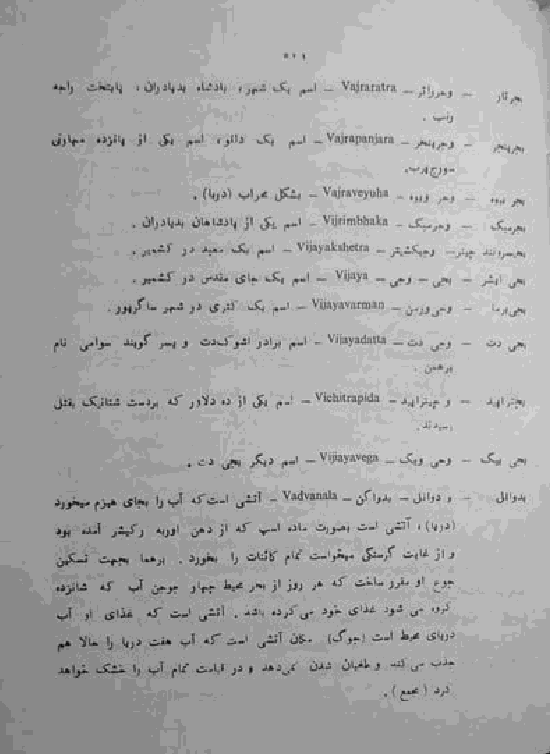 بجرتار — وجرراتر — Vajraratra — اسم یک شهر، بادشاه بدیادران، پایتخت راجه
وتب .
بجرپنجر — وجرپنجر — Vajrapanjara — اسم یک دانو، اسم یکی از پانزده مهارتی
سورج‌پرب.
بجر بیوه — وجر ویوه — Vajraveyuha — بشکل محراب (دریا) .
بجرمبک — وجرمبک — Vijrimbhaka — اسم یکی از پادشاهان بدیادران .
— وجیکشیتر — Vijayakshetra — اسم یک معبد در کشمیر .
بجی ایشر — بجی — وجی — Vijaya — اسم یک جای مقدس در کشمیر .
بجی‌برما — وجی‌ورمن — Vijayavarman — اسم یک کتری در شهر ساگرپور .
بجی دت — وجی دت — Vijayadatta — اسم برادر اشوک‌دت و پسر گویند سوامی نام
برهمن .
بچتراپید — وچیتراپید — Vichitrapida — اسم یکی از ده دلاور که بردست شتانیک بقتل
رسیدند.
بجی بیگ — وجی ویگ — Vijayavega — اسم دیگر بجی دت .
بدوانل — و دوانل — بدواکن — Vadvanala — آتشی است که آب را بجای هیزم میخورد
(دریا)، آتشی است بصورت ماده اسپ که از دهن اوربه رکیشر آمده بود
و از غایت گرسنگی میخواست تمام کائنات را بخورد . برهما بجهت تسکین
جوع او مقرر ساخت که هر روز از بحر محیط چهار جوجن آب که شانزده
کروه می شود غذای خود می‌کرده باشد . آتشی است که غذای او آب
دریای محیط است (جوگ) . مکان آتشی است که آب هفت دریا را حالا هم
جذب می‌کند و طغیان شدن نمی‌دهد و در قیامت تمام آب را خشک خواهد
کرد (مجمع) .